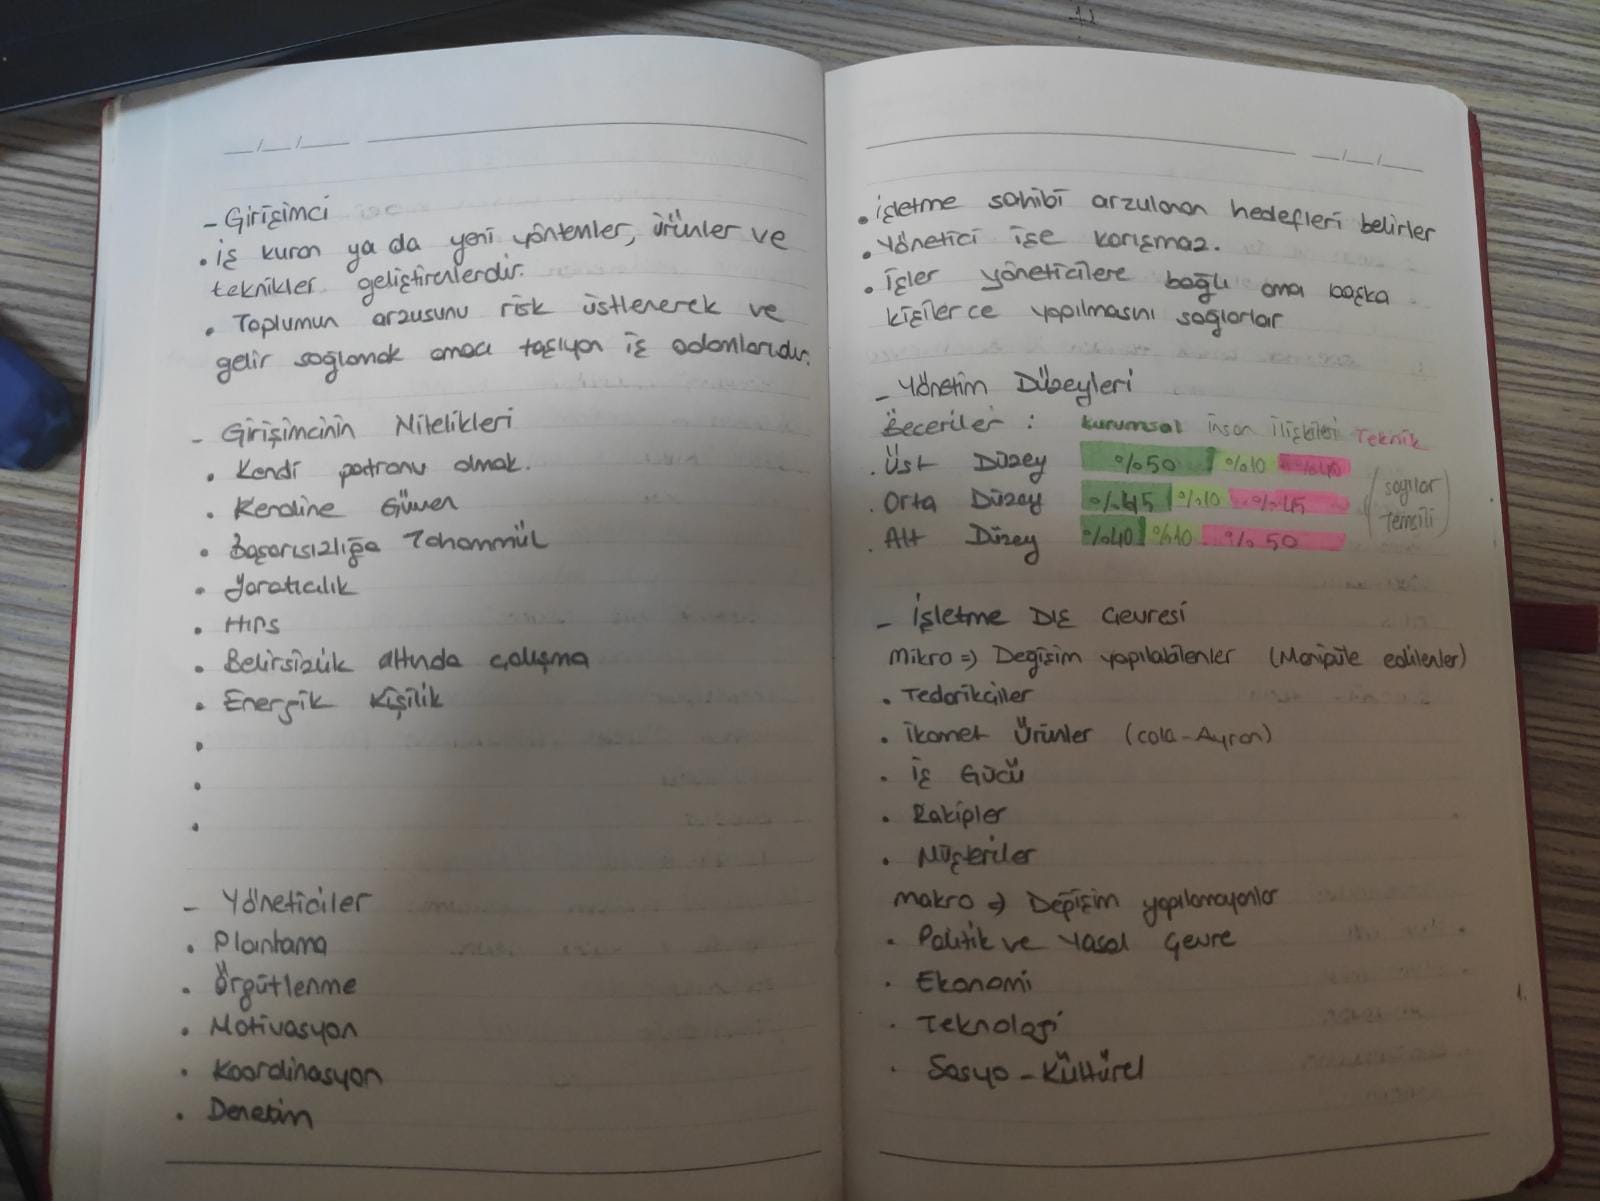 - Girişimci
• iş kuran ya da yeni yöntemler, ürünler ve
teknikler geliştirenlerdir.
• Toplumun arzusunu risk üstlenerek ve
gelir sağlamak amacı taşıyan iş adamlarıdır.
- Girişimcinin Nitelikleri
• Kendi patronu olmak.
• Kendine Güven
• Başarısızlığa Tahammül
• Yaratıcılık
• Hırs
• Belirsizlik altında çalışma
• Enerjik Kişilik
•
•
•
- Yöneticiler
• Planlama
• Örgütlenme
• Motivasyon
• Koordinasyon
• Denetim
• işletme sahibi arzulanan hedefleri belirler
• Yönetici işe karışmaz.
• işler yöneticilere bağlı ama başka
kişilerce yapılmasını sağlarlar
- Yönetim Düzeyleri
Beceriler : kurumsal insan ilişkileri Teknik
• Üst Düzey %50 %10 %40
• Orta Düzey %45 %10 %45 (sayılar
temsili)
• Alt Düzey %40 %10 %50
- İşletme Dış Çevresi
Mikro => Değişim yapılabilenler (Manipüle edilenler)
• Tedarikçiler
• ikamet Ürünler (cola-Ayran)
• iş Gücü
• Rakipler
• Müşteriler
Makro => Değişim yapılamayanlar
• Politik ve Yasal Çevre
• Ekonomi
• Teknoloji
• Sosyo-Kültürel